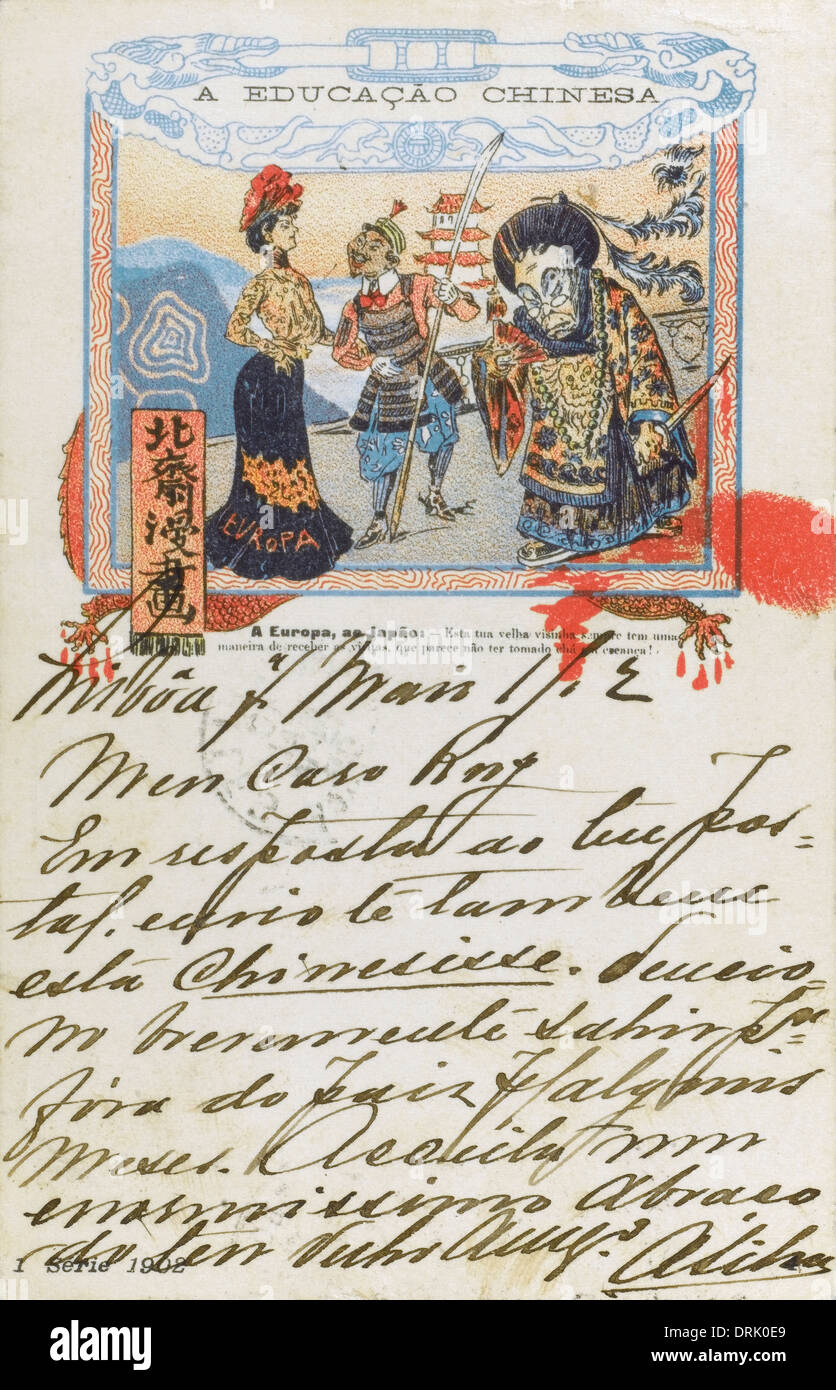 A EDUCAÇÃO CHINESA
EUROPA
北齋漫畫
A Europa, ao Japão: — Esta tua velha visinha sempre tem uma
maneira de receber as visitas, que parece não ter tomado chá em creança!
Lisbôa 7 Maio 1902
Meu Caro Ruy
Em resposta ao teu pos=
tal, envio te tambem
esta Chinesisse. Tenciono
no brevemente sahir pª
fóra do paiz p/ alguns
meses. Acceita um
enormissimo abraço
do teu velho Amgº
1 Serie 1902
alamy
Image ID: DRK0E9
www.alamy.com